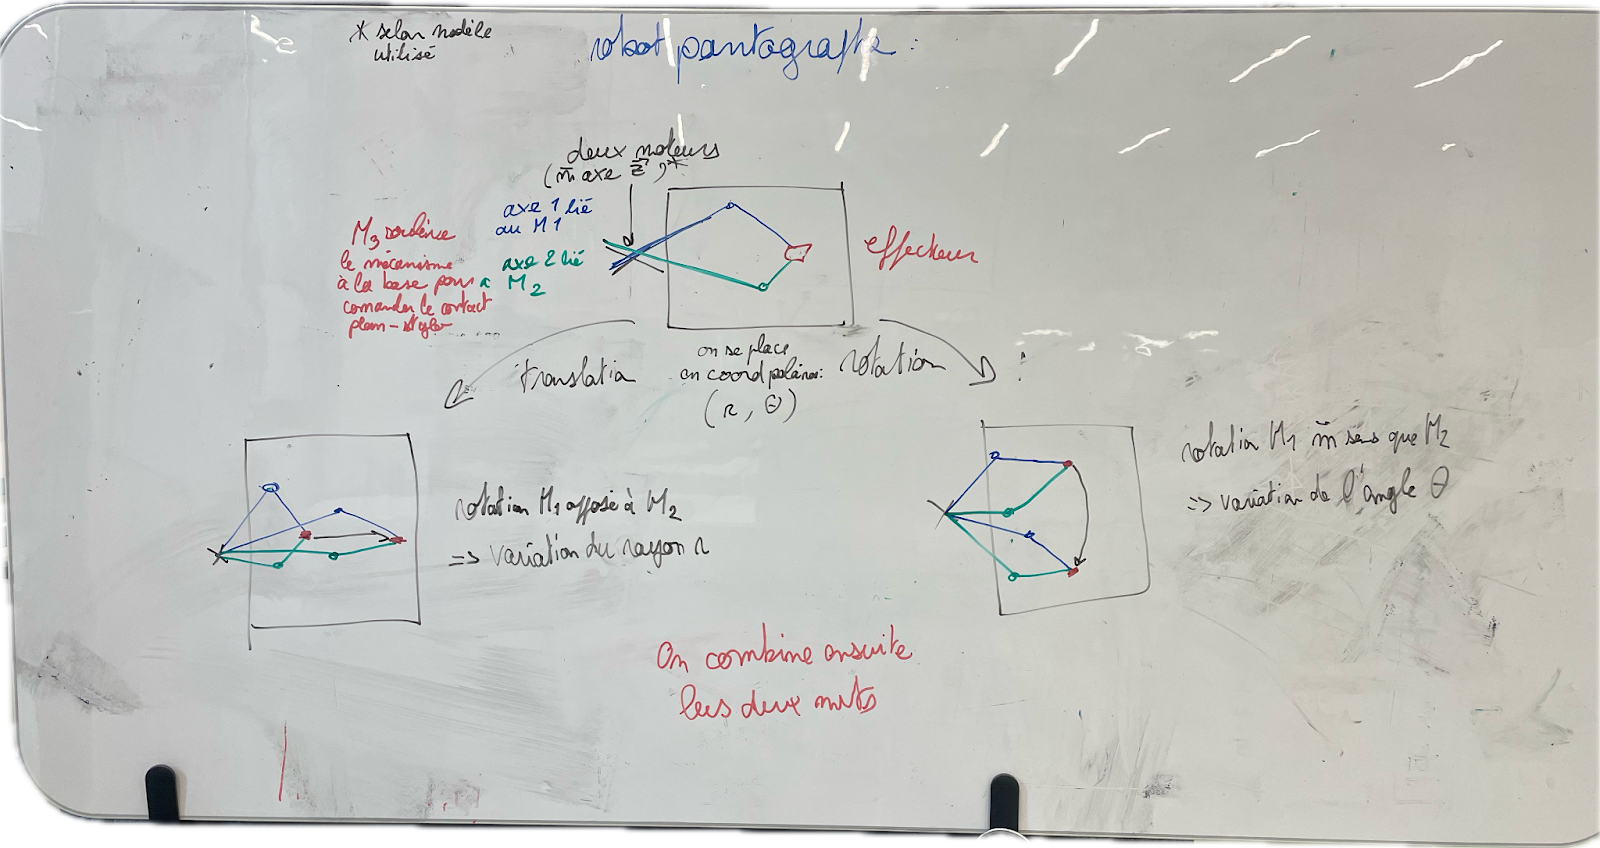 * selon modèle
utilisé
robot pantographe :
deux moteurs
(m̄ axe z⃗)*
axe 1 lié
au M1
axe 2 lié
à M2
M3 soulève
le mécanisme
à la base pour
comander le contact
plan - stylo
effecteur
translation
on se place
en coord polaires:
(r, θ)
rotation
rotation M1 opposé à M2
=> variation du rayon r
rotation M1 m̄ sens que M2
=> variation de l'angle θ
On combine ensuite
les deux mvts